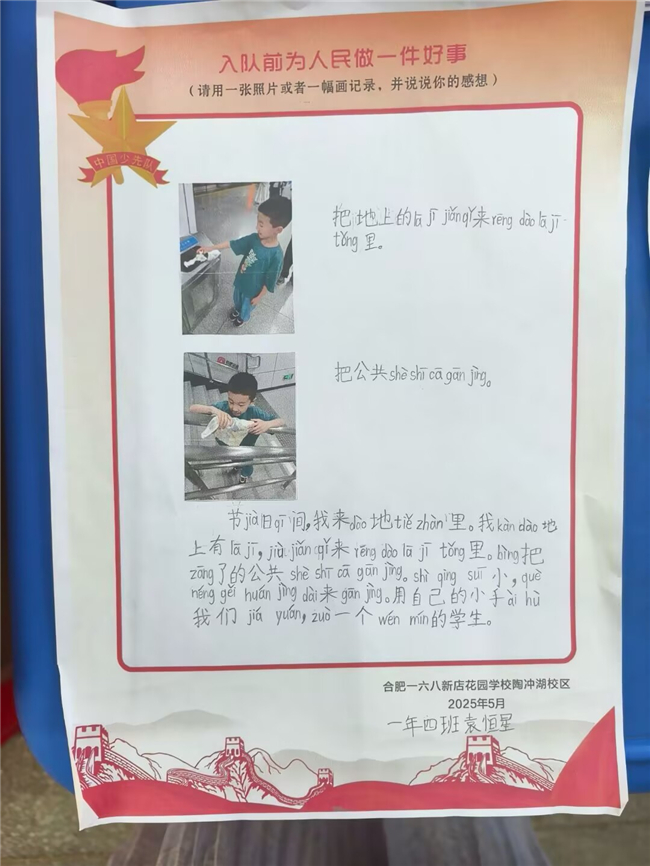 入队前为人民做一件好事
（请用一张照片或者一幅画记录，并说说你的感想）
中国少先队
把地上的lā jī jiǎn qǐ来rēng dào lā jī
tǒng里。
把公共shè shī cā gān jìng。
节jià日qī间，我来dào地tiě zhàn里。我kàn dào地
上有lā jī，jiù jiǎn qǐ来rēng dào lā jī tǒng里。bìng把
zāng了的公共shè shī cā gān jìng。shì qing suī小，què
néng gěi huán jìng dài来gān jìng。用自己的小手ài hù
我们jiā yuán，zuò一个wén míng的学生。
合肥一六八新店花园学校陶冲湖校区
2025年5月
一年四班袁恒星